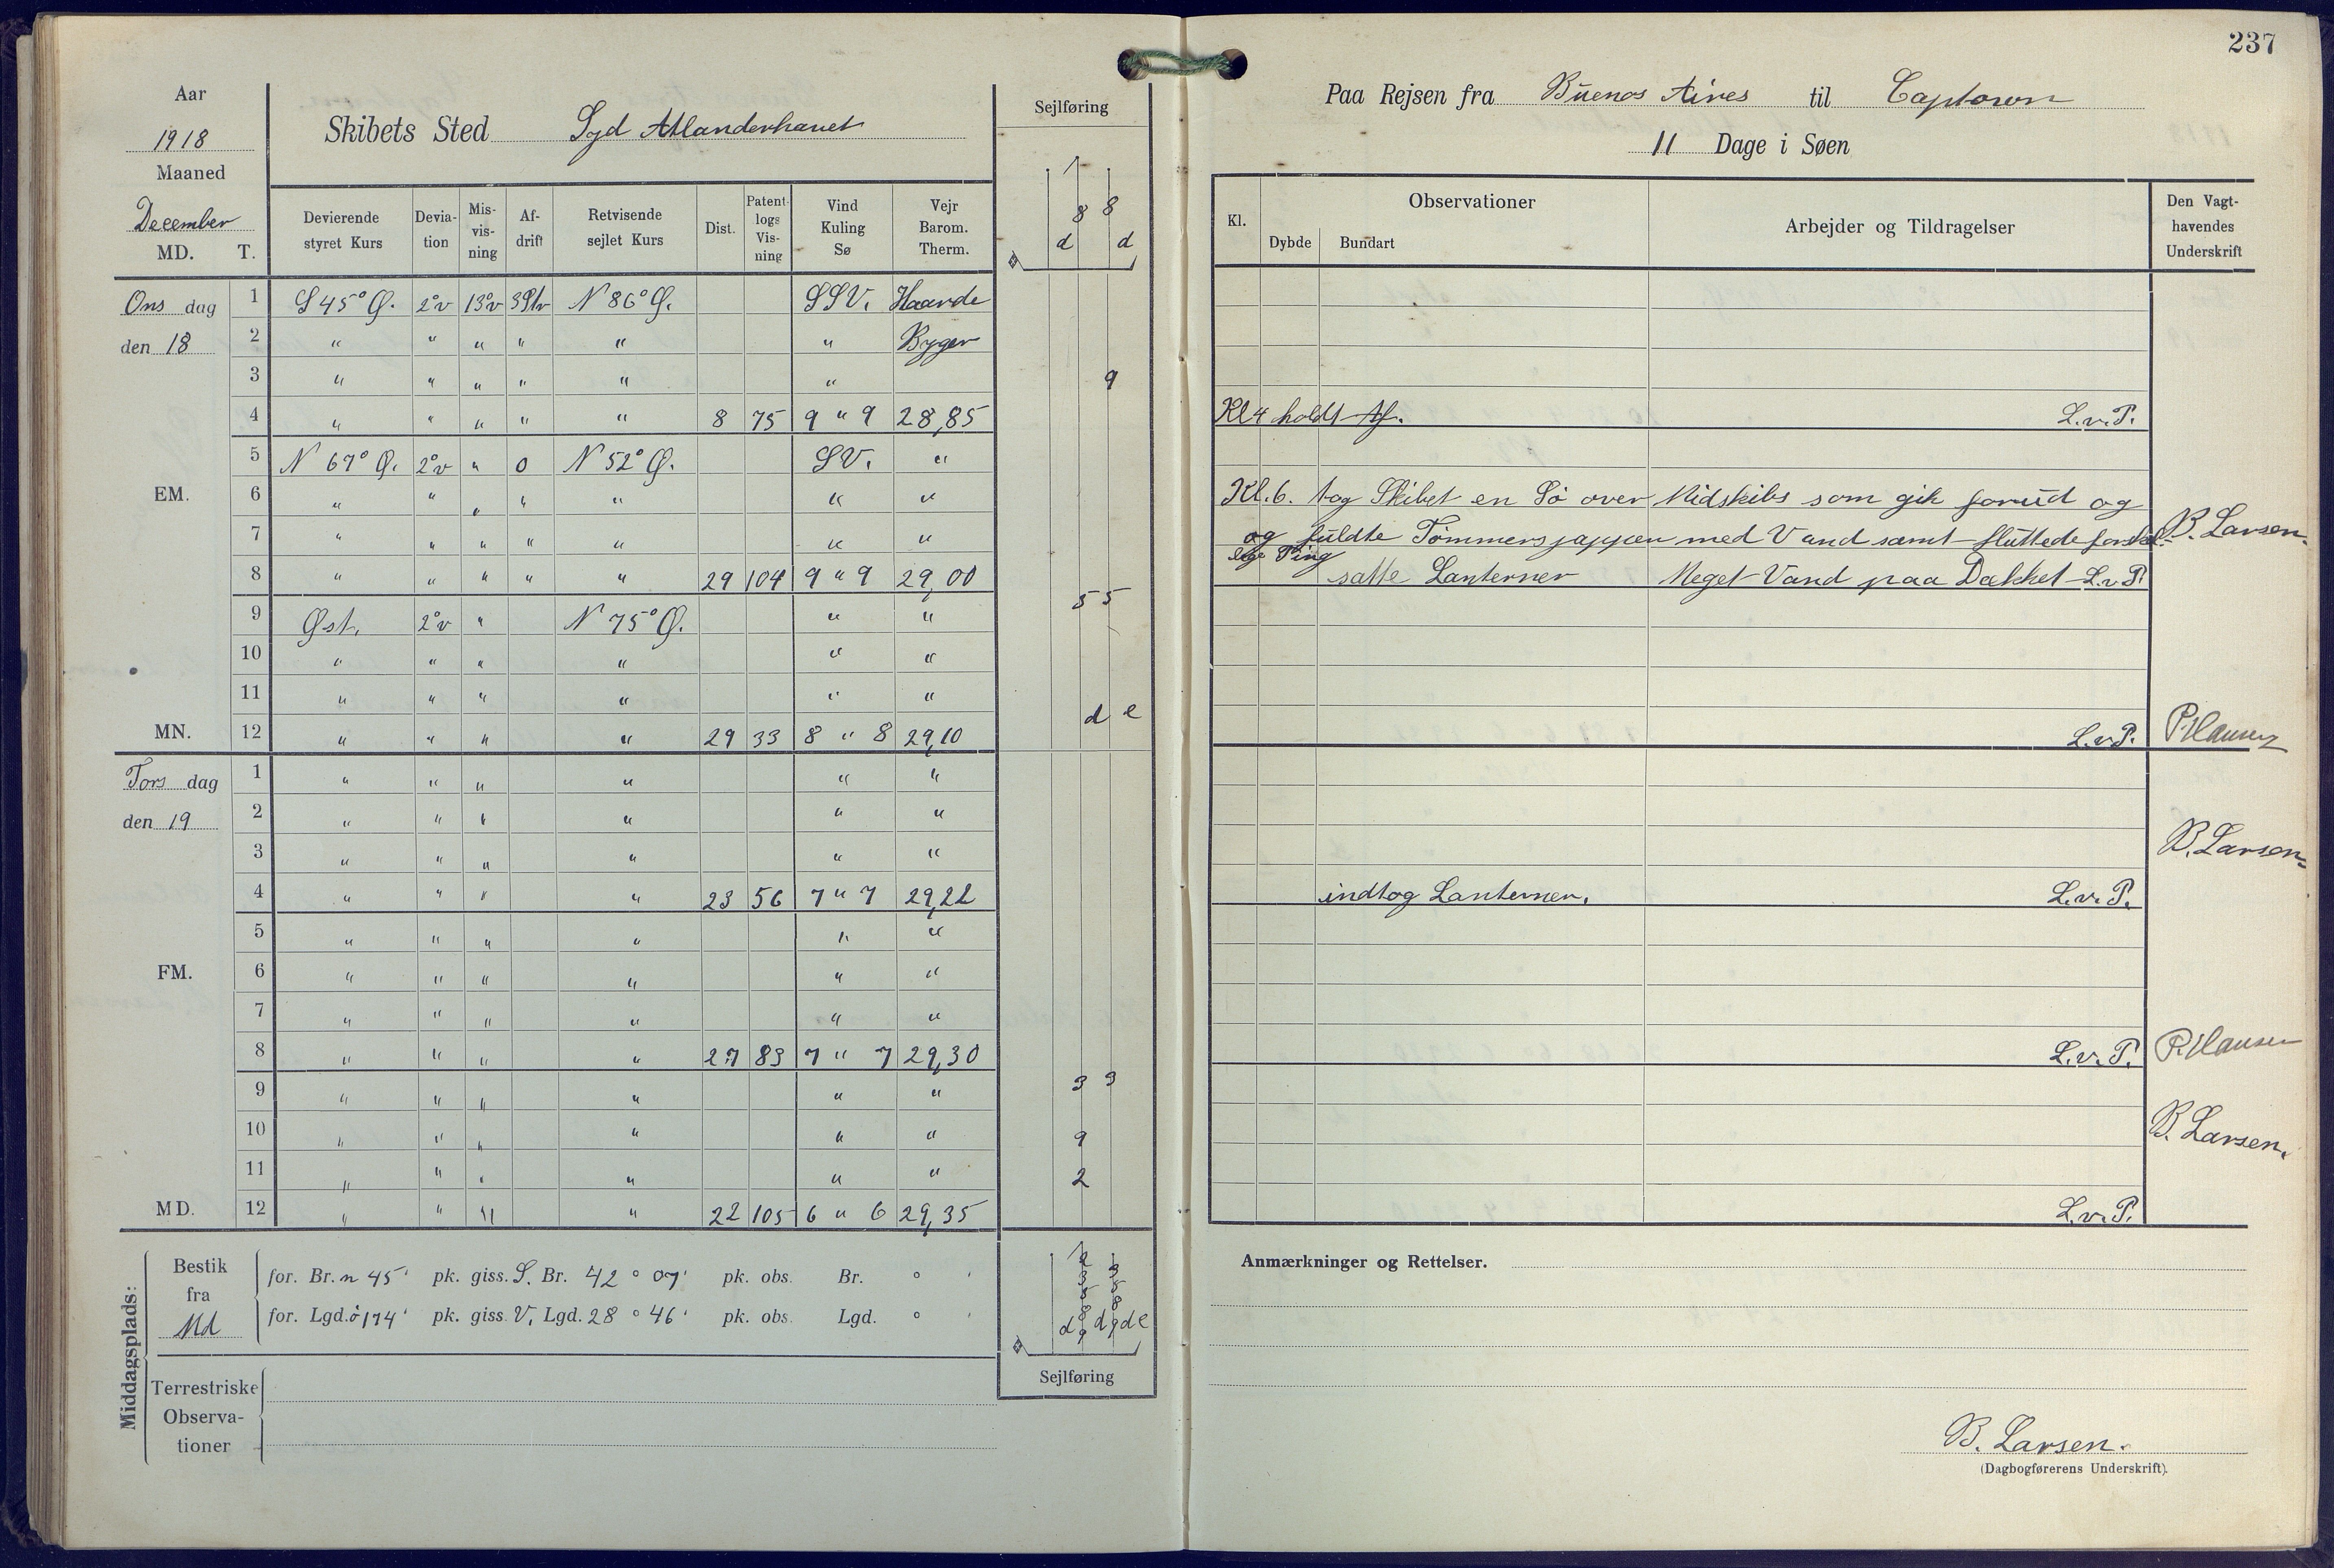 237
Aar
1918
Maaned
December
MD. T.
Skibets Sted Syd Atlanderhavet
Sejlføring
Devierende styret Kurs
Devia-tion
Mis-vis-ning
Af-drift
Retvisende sejlet Kurs
Dist.
Patent-logs Vis-ning
Vind Kuling Sø
Vejr Barom. Therm.
8 8
d d
Ons dag 1 S 45° Ø. 2°v 13°v 3Str N 86° Ø. SSV. Haarde
den 18 2 " " " " " " Byger
3 " " " " " " 9
4 " " " " " 8 75 9 " 9 28,85
5 N 67° Ø. 2°v " 0 N 52° Ø. SV. "
EM. 6 " " " " " " "
7 " " " " " " "
8 " " " " " 29 104 9 " 9 29,00
9 Øst. 2°v " N 75° Ø. " " 5 5
10 " " " " " "
11 " " " " " "
MN. 12 " " " " 29 33 8 " 8 29,10 d e
Tors dag 1 " " " " " "
den 19 2 " " " " " "
3 " " " " " "
4 " " " " 23 56 7 " 7 29,22
5 " " " " " "
FM. 6 " " " " " "
7 " " " " " "
8 " " " " 27 83 7 " 7 29,30
9 " " " " " " 3 3
10 " " " " " " 9
11 " " " " " " 2
MD. 12 " " " " 22 105 6 " 6 29,35
Middagsplads:
Bestik fra Md
for. Br. n 45' pk. giss. S. Br. 42° 07' pk. obs. Br. ° '
for. Lgd. ö 174' pk. giss. V. Lgd. 28° 46' pk. obs. Lgd. ° '
d d d e
Sejlføring
Terrestriske
Observa-
tioner
Paa Rejsen fra Buenos Aires til Captown
11 Dage i Søen
Kl.
Observationer
Dybde Bundart
Arbejder og Tildragelser
Den Vagt-
havendes
Underskrift
Kl 4 holdt Af. L.v.P.
Kl. 6. tog Skibet en Sö over Midskibs som gik forud og
og fuldte Tömmersjappen med Vand samt
B. Larsen.
satte Lanterner Meget Vand paa Dækket L.v.P.
L.v.P. P. Hansen
B. Larsen
indtog Lanterner. L.v.P.
L.v.P. P. Hansen
B. Larsen.
L.v.P.
Anmærkninger og Rettelser.
B. Larsen.
(Dagbogførerens Underskrift).